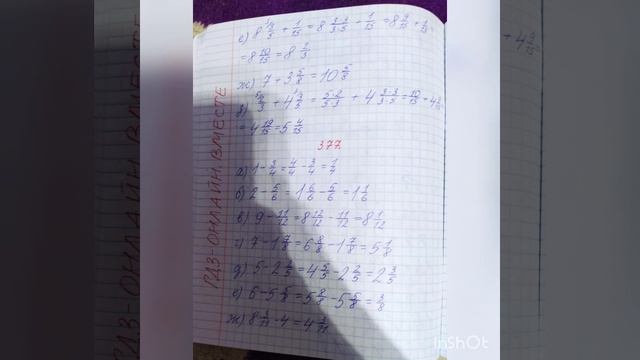 е) 8 3/5 + 1/15 = 8 3·3/3·5 - 1/15 = 8 9/15 + 1/15
= 8 10/15 = 8 2/3
ж) 7 + 3 5/8 = 10 5/8
= 4 19/15 = 5 4/15
377
а) 1 - 3/4 = 4/4 - 3/4 = 1/4
б) 2 - 5/6 = 1 6/6 - 5/6 = 1 1/6
в) 9 - 11/12 = 8 12/12 - 11/12 = 8 1/12
г) 7 - 1 7/8 = 6 8/8 - 1 7/8 = 5 1/8
д) 5 - 2 2/5 = 4 5/5 - 2 2/5 = 2 3/5
е) 6 - 5 5/8 = 5 8/8 - 5 5/8 = 3/8
ж) 8 3/11 - 4 = 4 3/11
ГДЗ-ОНЛАЙН ВМЕСТЕ
InShOt